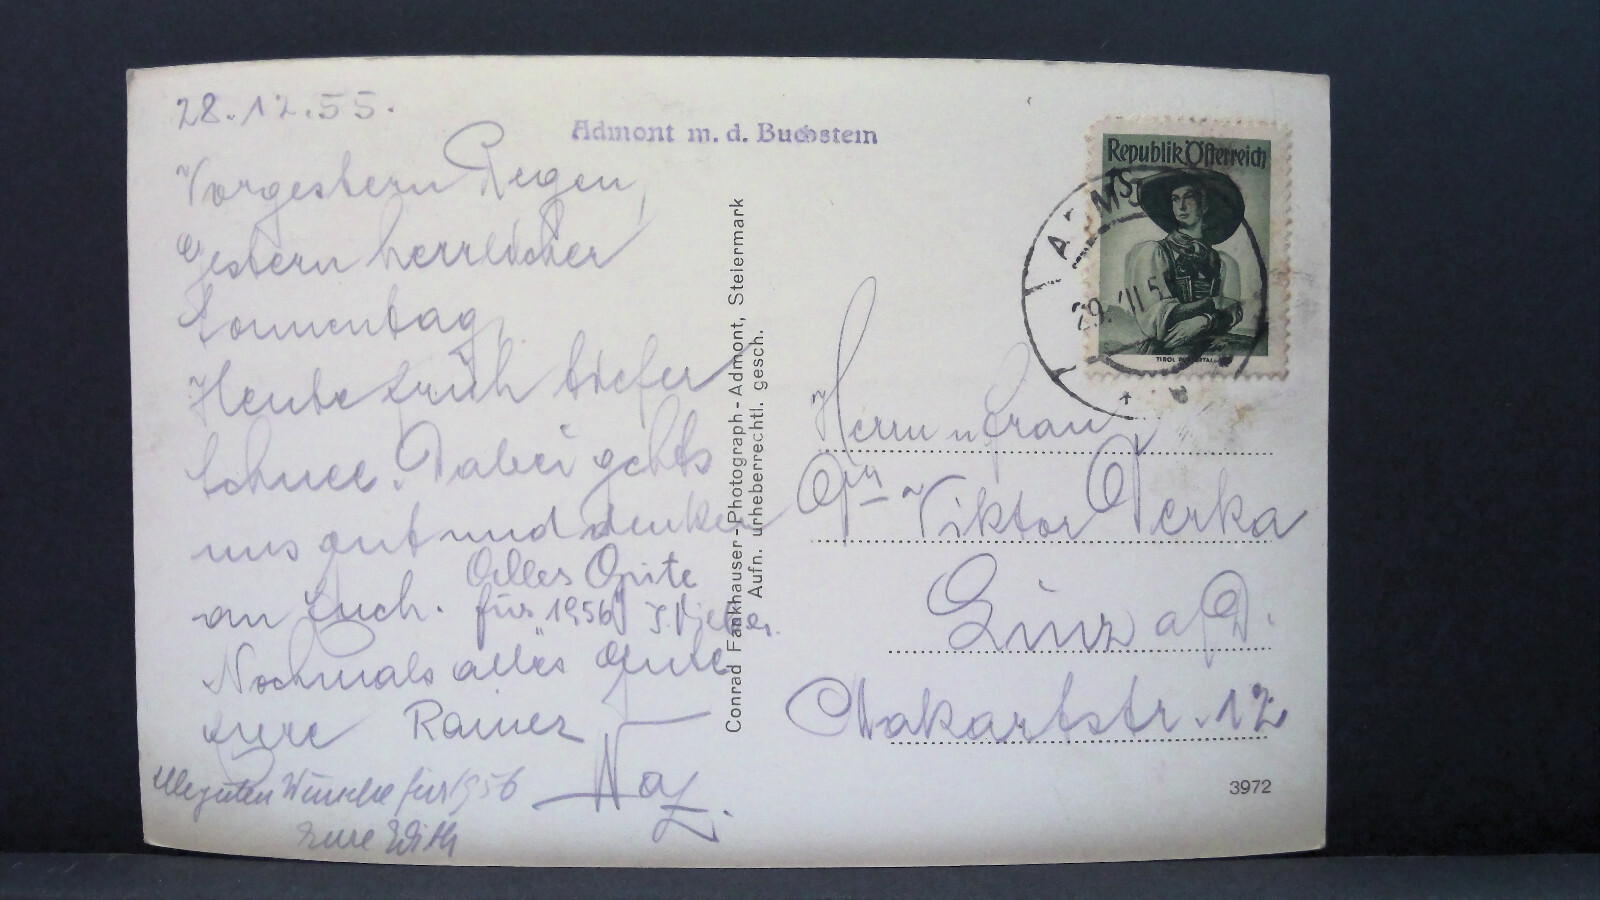 28.12.55.
Admont m. d. Buchstein
Vorgestern Regen,
Gestern herrlicher
Sonnentag,
Heute früh tiefer
Schnee. Dabei gehts
uns gut und denken
an Euch.
Alles Gute
für 1956
Nochmals alles Gute
Eure
Rainer
Naz.
Alle guten Wünsche für 1956
Eure Edith
Conrad Fankhauser - Photograph - Admont, Steiermark
Aufn. urheberrechtl. gesch.
Republik Österreich
29. XII. 5
Herrn u Frau
Viktor Perka
Linz a/D.
Makartstr. 12
3972